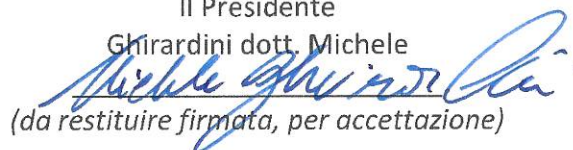 Il Presidente
Ghirardini dott. Michele
Michele Ghirardini
(da restituire firmata, per accettazione)